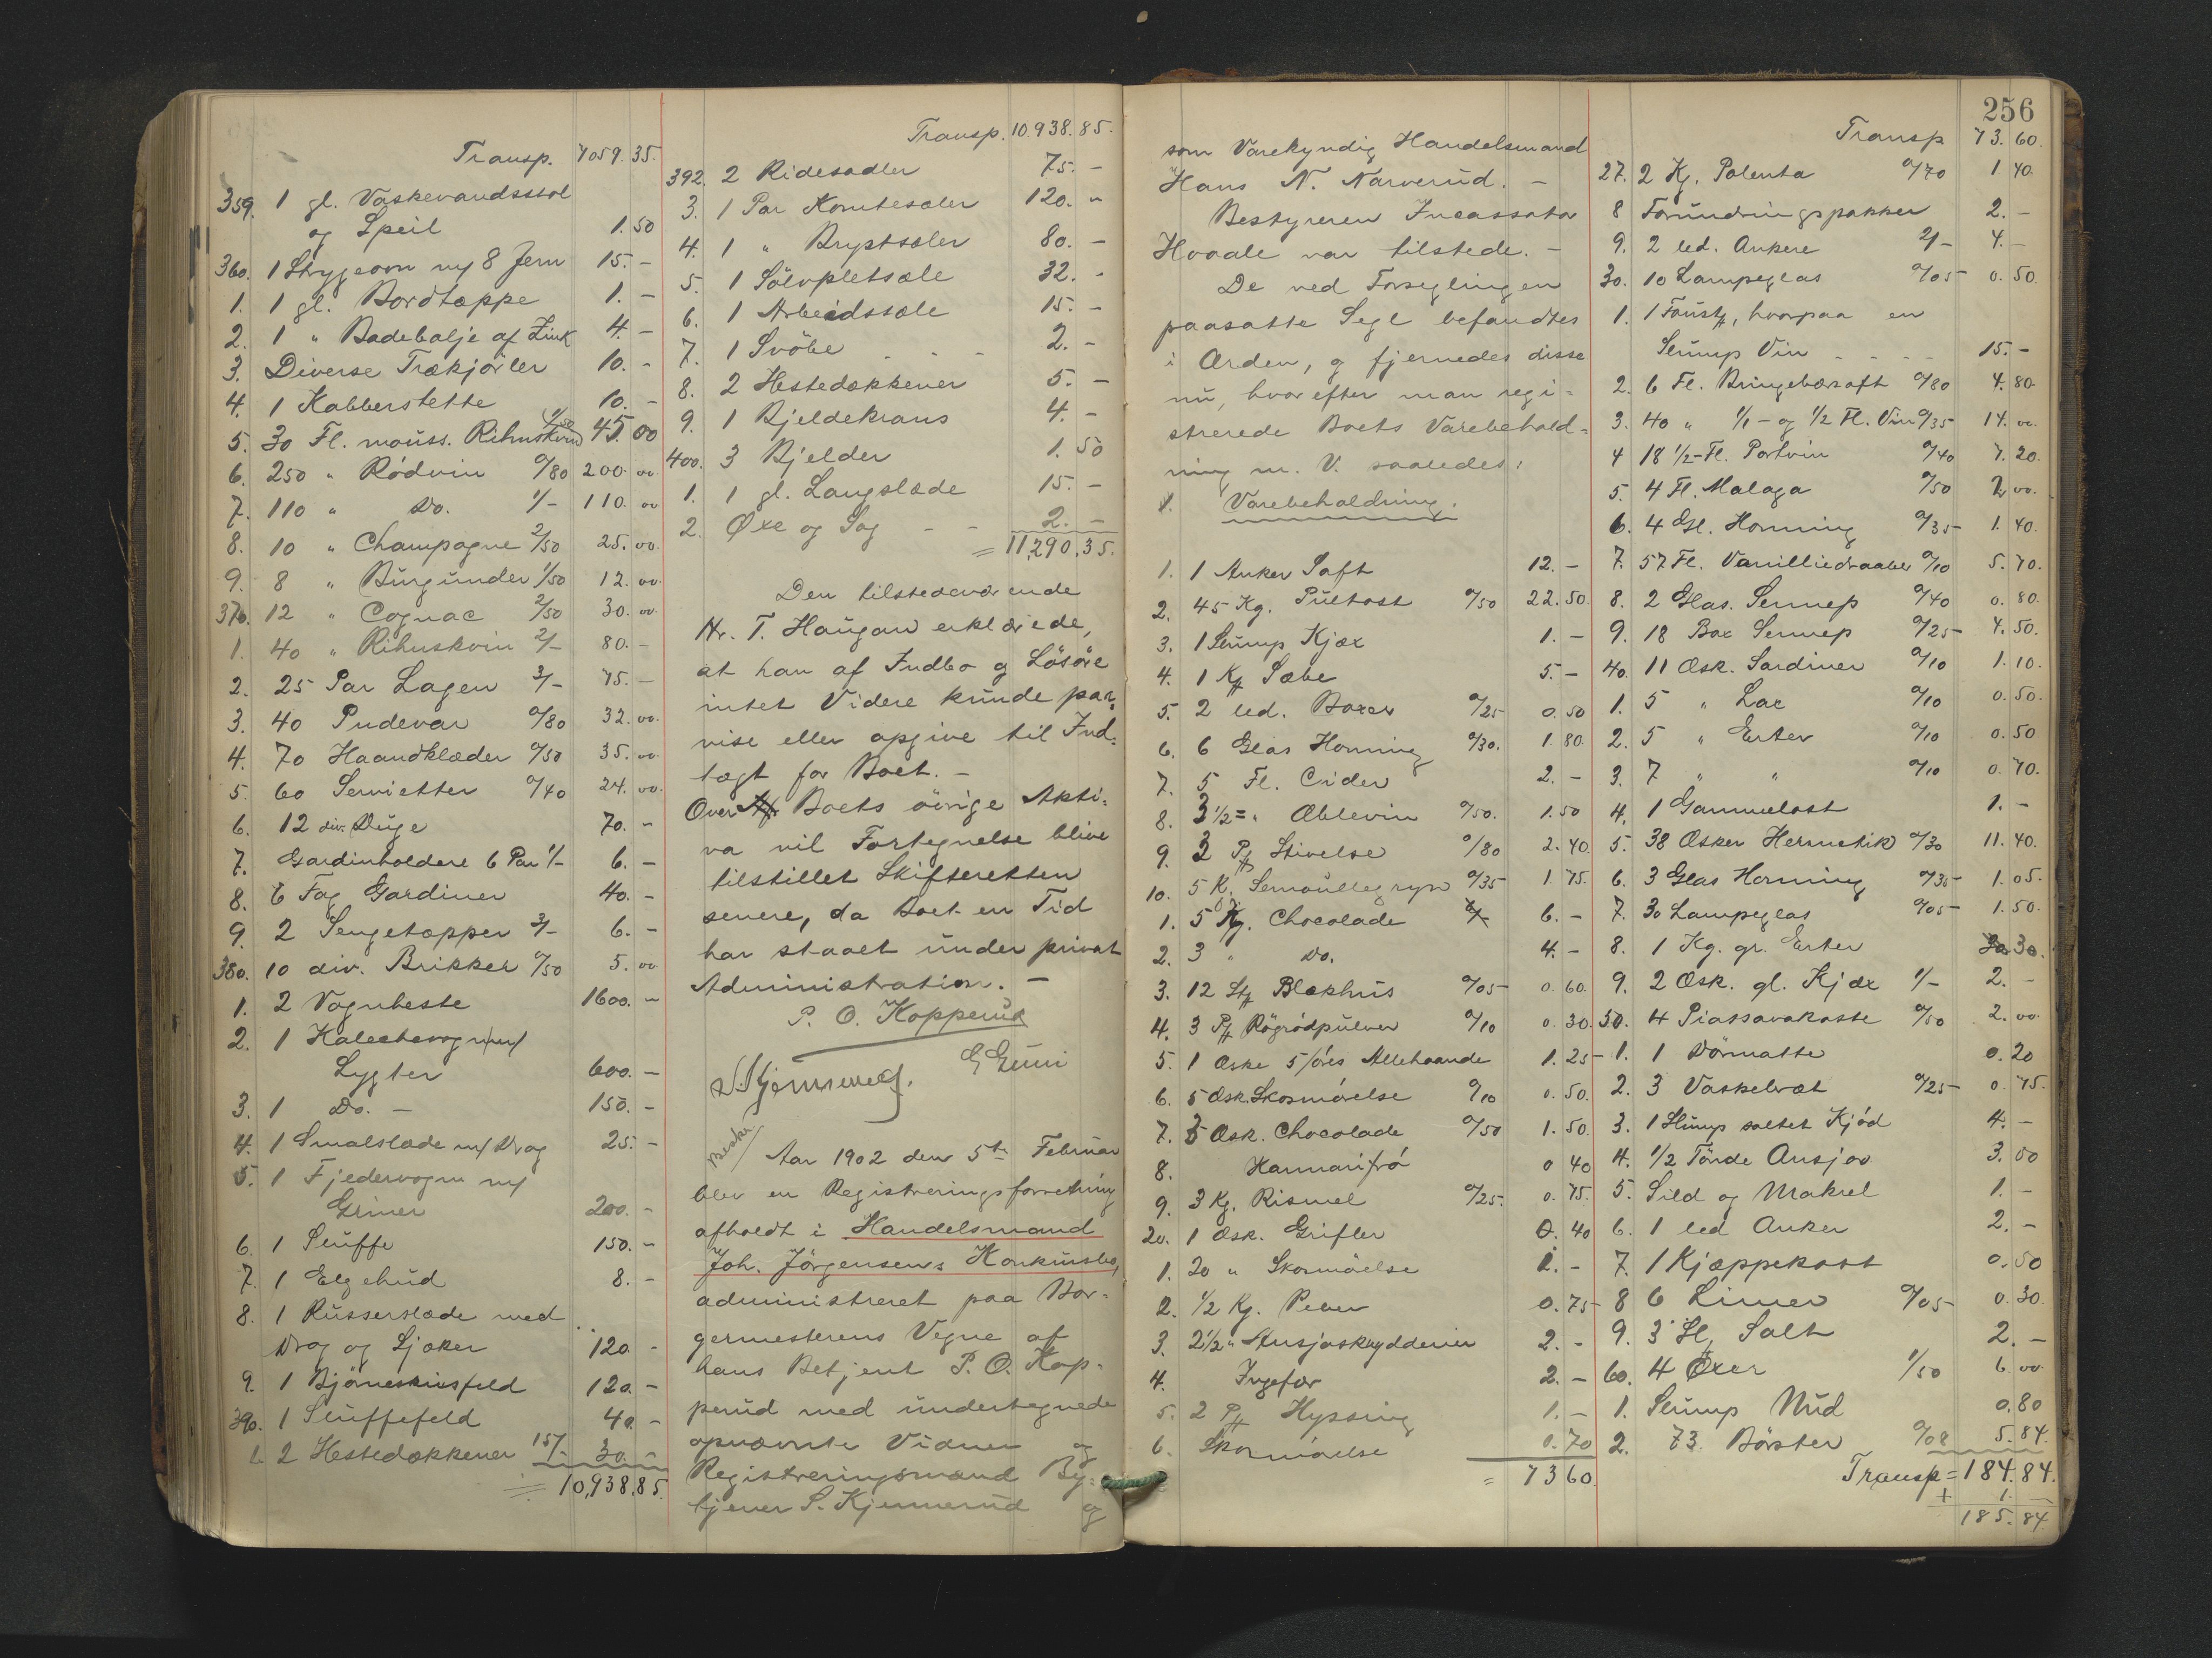 Transp. 7059.35.
359. 1 gl. Vaskevandsstol
og Speil 1.50
360. 1 Strygeovn m/ 8 Jern 15.-
1. 1 gl. Bordtæppe 1.-
2. 1 " Badebalje af Zink 4.-
3. Diverse Trækjørler 10.-
4. 1 Kobberstette 10.-
5. 30 Fl. mouss. Rihnskvin 1/50 45.00
6. 250 " Rødvin 0/80 200.00
7. 110 " Do. 1/- 110.00
8. 10 " Champagne 2/50 25.00
9. 8 " Burgunder 1/50 12.00
370. 12 " Cognac 2/50 30.00
1. 40 " Rihnskvin 2/- 80.-
2. 25 Par Lagen 3/- 75.-
3. 40 Pudevar 0/80 32.00
4. 70 Haandklæder 0/50 35.00
5. 60 Servietter 0/40 24.00
6. 12 div. Duge 70.-
7. Gardinholdere 6 Par 1/- 6.-
8. 6 Fag Gardiner 40.-
9. 2 Sengetæpper 3/- 6.-
380. 10 div. Brikker 0/50 5.00
1. 2 Vognheste 1600.-
2. 1 Kaleschevogn m/
Lygter 600.-
3. 1 Do. - 150.-
4. 1 Smalslæde m/ Drag 25.-
5. 1 Fjedervogn m/
Griner 200.-
6. 1 Sluffe 150.-
7. 1 Elgehud 8.-
8. 1 Russerslæde med
Drag og Sjæker 120.-
9. 1 Bjørneskinsfeld 120.-
390. 1 Sluffefeld 40.-
1. 2 Hestedækkener 15/- 30.-
= 10,938.85.
Transp. 10.938.85.
392. 2 Ridesadler 75.-
3. 1 Par Komtesæler 120.-
4. 1 " Brystsæler 80.-
5. 1 Sölvpletsæle 32.-
6. 1 Arbeidssæle 15.-
7. 1 Svöbe - - - 2.-
8. 2 Hestedækkener 5.-
9. 1 Bjeldekrans 4.-
400. 3 Bjelder 1.50
1. 1 gl. Langslæde 15.-
2. Øxe og Sag - - 2.-
= 11,290.35.
Den tilstedeværende
Hr. T. Haugan erklærede,
at han af Indbo og Lösöre
intet Videre kunde paa-
vise eller opgive til Ind-
tægt for Boet. -
Over Boets övrige Akti-
va vil Fortegnelse blive
tilstillet Skifteretten
senere, da Boet en Tid
har staaet under privat
Administration. -
P. O. Kopperud
Beskr/ Aar 1902 den 5te Februar
blev en Registreringsforretning
afholdt i Handelsmand
Joh. Jörgensens Konkursbo,
administreret paa Bor-
germesterens Vegne af
hans Betjent P. O. Kop-
perud med undertegnede
opnævnte Vidner og
Registreringsmænd By-
tjener S. Kjennerud og
256
som Varekyndig Handelsmand
Hans N. Narverud. -
Bestyreren Incassator
Hovale var tilstede. -
De ved Forseglingen
paasatte Segl befandtes
i Orden, og fjernedes disse
nu, hvorefter man regi-
strerede Boets Varebehold-
ning m. V. saaledes:
1. Varebeholdning.
1. 1 Anker Saft 12.-
2. 45 Kg. Pultost 0/50 22.50
3. 1 Slump Kjæx 1.-
4. 1 Kg Sæbe 5.-
5. 2 led. Boxer 0/25 0.50
6. 6 Glas Honning 0/30. 1.80.
7. 5 Fl. Cider 2.-
8. 3 1/2= " Æblevin 0/50. 1.50
9. 3 Pk Stivelse 0/80 2.40.
10. 5 K. Semoullegryn 0/35 1.75.
1. 5 Kg. Chocolade 6.-
2. 3 " Do. 4.-
3. 12 Stk Blækhus 0/05 0.60.
4. 3 Pk Rögrödpulver 0/10 0.30.
5. 1 Æske 5/öres Allehaande 1.25
6. 5 Æsk. Skosmörelse 0/10 0.50.
7. 3 Æsk. Chocolade 0/50 1.50.
8. Kannarifrö 0.40
9. 3 Kg. Rismel 0/25. 0.75.
20. 1 Æsk. Grifler 0.40
1. 20 " Skosmörelse 1.-
2. 1/2 Kg. Peber 0.75
3. 2 1/2 " Ansjoskrydderier 2.-
4. Ingefær 2.-
5. 2 Pk Hyssing 1.-
6. Skosmörelse 0.70
= 73 60.
Transp 73.60.
27. 2 Kg. Polenta 0/70 1.40.
8 Forundringspakker 2.-
9. 2 led. Ankere 2/- 4.-
30. 10 Lampeglas 0/05 0.50.
1. 1 Foustg, hvorpaa en
Slump Vin - - - - 15.-
2. 6 Fl. Bringebærsaft 0/80 4.80.
3. 40 " 1/1- og 1/2 Fl. Vin 0/35 14.00.
4 18 1/2-Fl. Portvin 0/40 7.20.
5. 4 Fl. Malaga 0/50 2.00.
6. 4 Gl. Honning 0/35 1.40.
7. 57 Fl. Vanilliedraaber 0/10 5.70.
8. 2 Glas. Sennep 0/40 0.80.
9. 18 Box Sennep 0/25 4.50.
40. 11 Æsk. Sardiner 0/10 1.10.
1. 5 " Lax 0/10 0.50.
2. 5 " Erter 0/10 0.50
3. 7 " " 0/10 0.70.
4. 1 Gammelost 1.-
5. 38 Æsker Hermetik 0/30 11.40.
6. 3 Glas Honning 0/35 1.05.
7. 30 Lampeglas 0/05 1.50.
8. 1 Kg. gr. Erter 30.
9. 2 Æsk. gl. Kjæx 1/- 2.-
50. 4 Piassavakoste 0/50 2.00
1. 1 Dörmatte 0.20
2. 3 Vaskebræt 0/25 0.75.
3. 1 Slump saltet Kjöd 4.-
4. 1/2 Tönde Ansjos 3.00
5. Sild og Makrel 1.-
6. 1 led Anker 2.-
7. 1 Kjæppekost 0.50
8 6 Limer 0/05 0.30.
9. 3 Hl Salt 2.-
60. 4 Øxer 1/50 6.00
1. Slump Nud 0.80
2. 73. Börster 0/08 5.84.
Transp = 184.84.
+ 1.-
185.84.